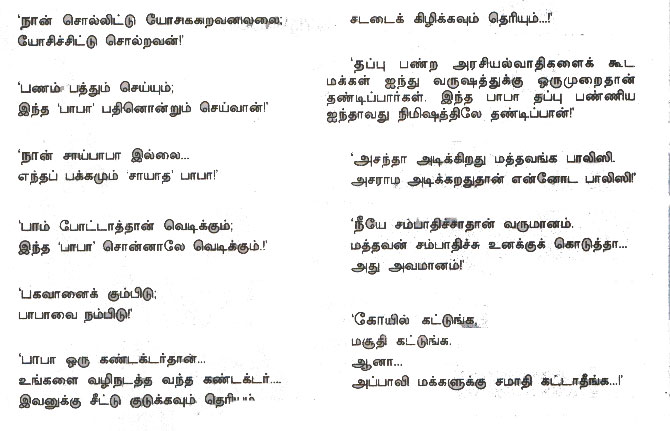 ‘நான் சொல்லிட்டு யோசிக்கறவனில்லை;
யோசிச்சிட்டு சொல்றவன்!’
‘பணம் பத்தும் செய்யும்;
இந்த ‘பாபா’ பதினொன்றும் செய்வான்!’
‘நான் சாய்பாபா இல்லை...
எந்தப் பக்கமும் ‘சாயாத’ பாபா!’
‘பாம் போட்டாத்தான் வெடிக்கும்;
இந்த ‘பாபா’ சொன்னாலே வெடிக்கும்.!’
‘பகவானைக் கும்பிடு;
பாபாவை நம்பிடு!’
‘பாபா ஒரு கண்டக்டர்தான்...
உங்களை வழிநடத்த வந்த கண்டக்டர்....
இவனுக்கு சீட்டு குடுக்கவும் தெரியும்
சட்டைக் கிழிக்கவும் தெரியும்...!’
‘தப்பு பண்ற அரசியல்வாதிகளைக் கூட
மக்கள் ஐந்து வருஷத்துக்கு ஒருமுறைதான்
தண்டிப்பார்கள். இந்த பாபா தப்பு பண்ணிய
ஐந்தாவது நிமிஷத்திலே தண்டிப்பான்!’
‘அசந்தா அடிக்கிறது மத்தவங்க பாலிஸி.
அசராம அடிக்கறதுதான் என்னோட பாலிஸி!’
‘நீயே சம்பாதிச்சாதான் வருமானம்.
மத்தவன் சம்பாதிச்சு உனக்குக் கொடுத்தா...
அது அவமானம்!’
‘கோயில் கட்டுங்க.
மசூதி கட்டுங்க.
ஆனா...
அப்பாவி மக்களுக்கு சமாதி கட்டாதீங்க...!’